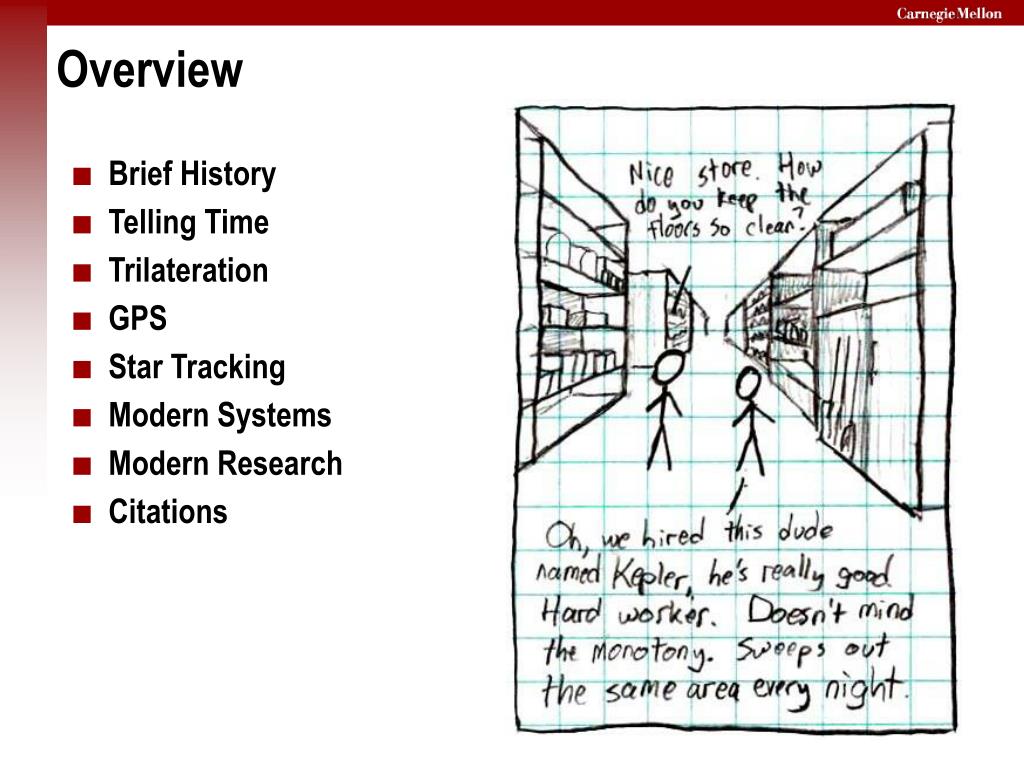 Carnegie Mellon
Overview
Brief History
Telling Time
Trilateration
GPS
Star Tracking
Modern Systems
Modern Research
Citations
Nice store. How
do you keep the
floors so clean?
Oh, we hired this dude
named Kepler, he's really good.
Hard worker. Doesn't mind
the monotony. Sweeps out
the same area every night.